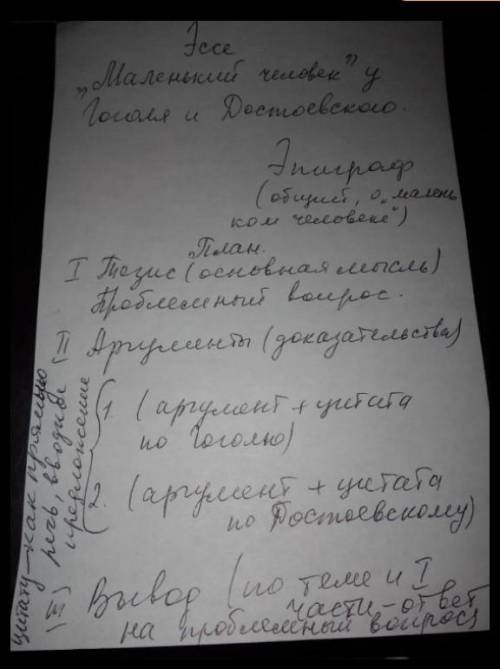 Эссе
"Маленький человек" у
Гоголя и Достоевского.
Эпиграф
(общий, о "малень
ком человеке")
План.
I Тезис (основная мысль)
Проблемный вопрос.
II Аргументы (доказательства)
1. (аргумент + цитата
по Гоголю)
2. (аргумент + цитата
по Достоевскому)
III) Вывод (по теме и I
части, - ответ
на проблемный вопрос)
цитату - как прямую
речь, вводные
предложение